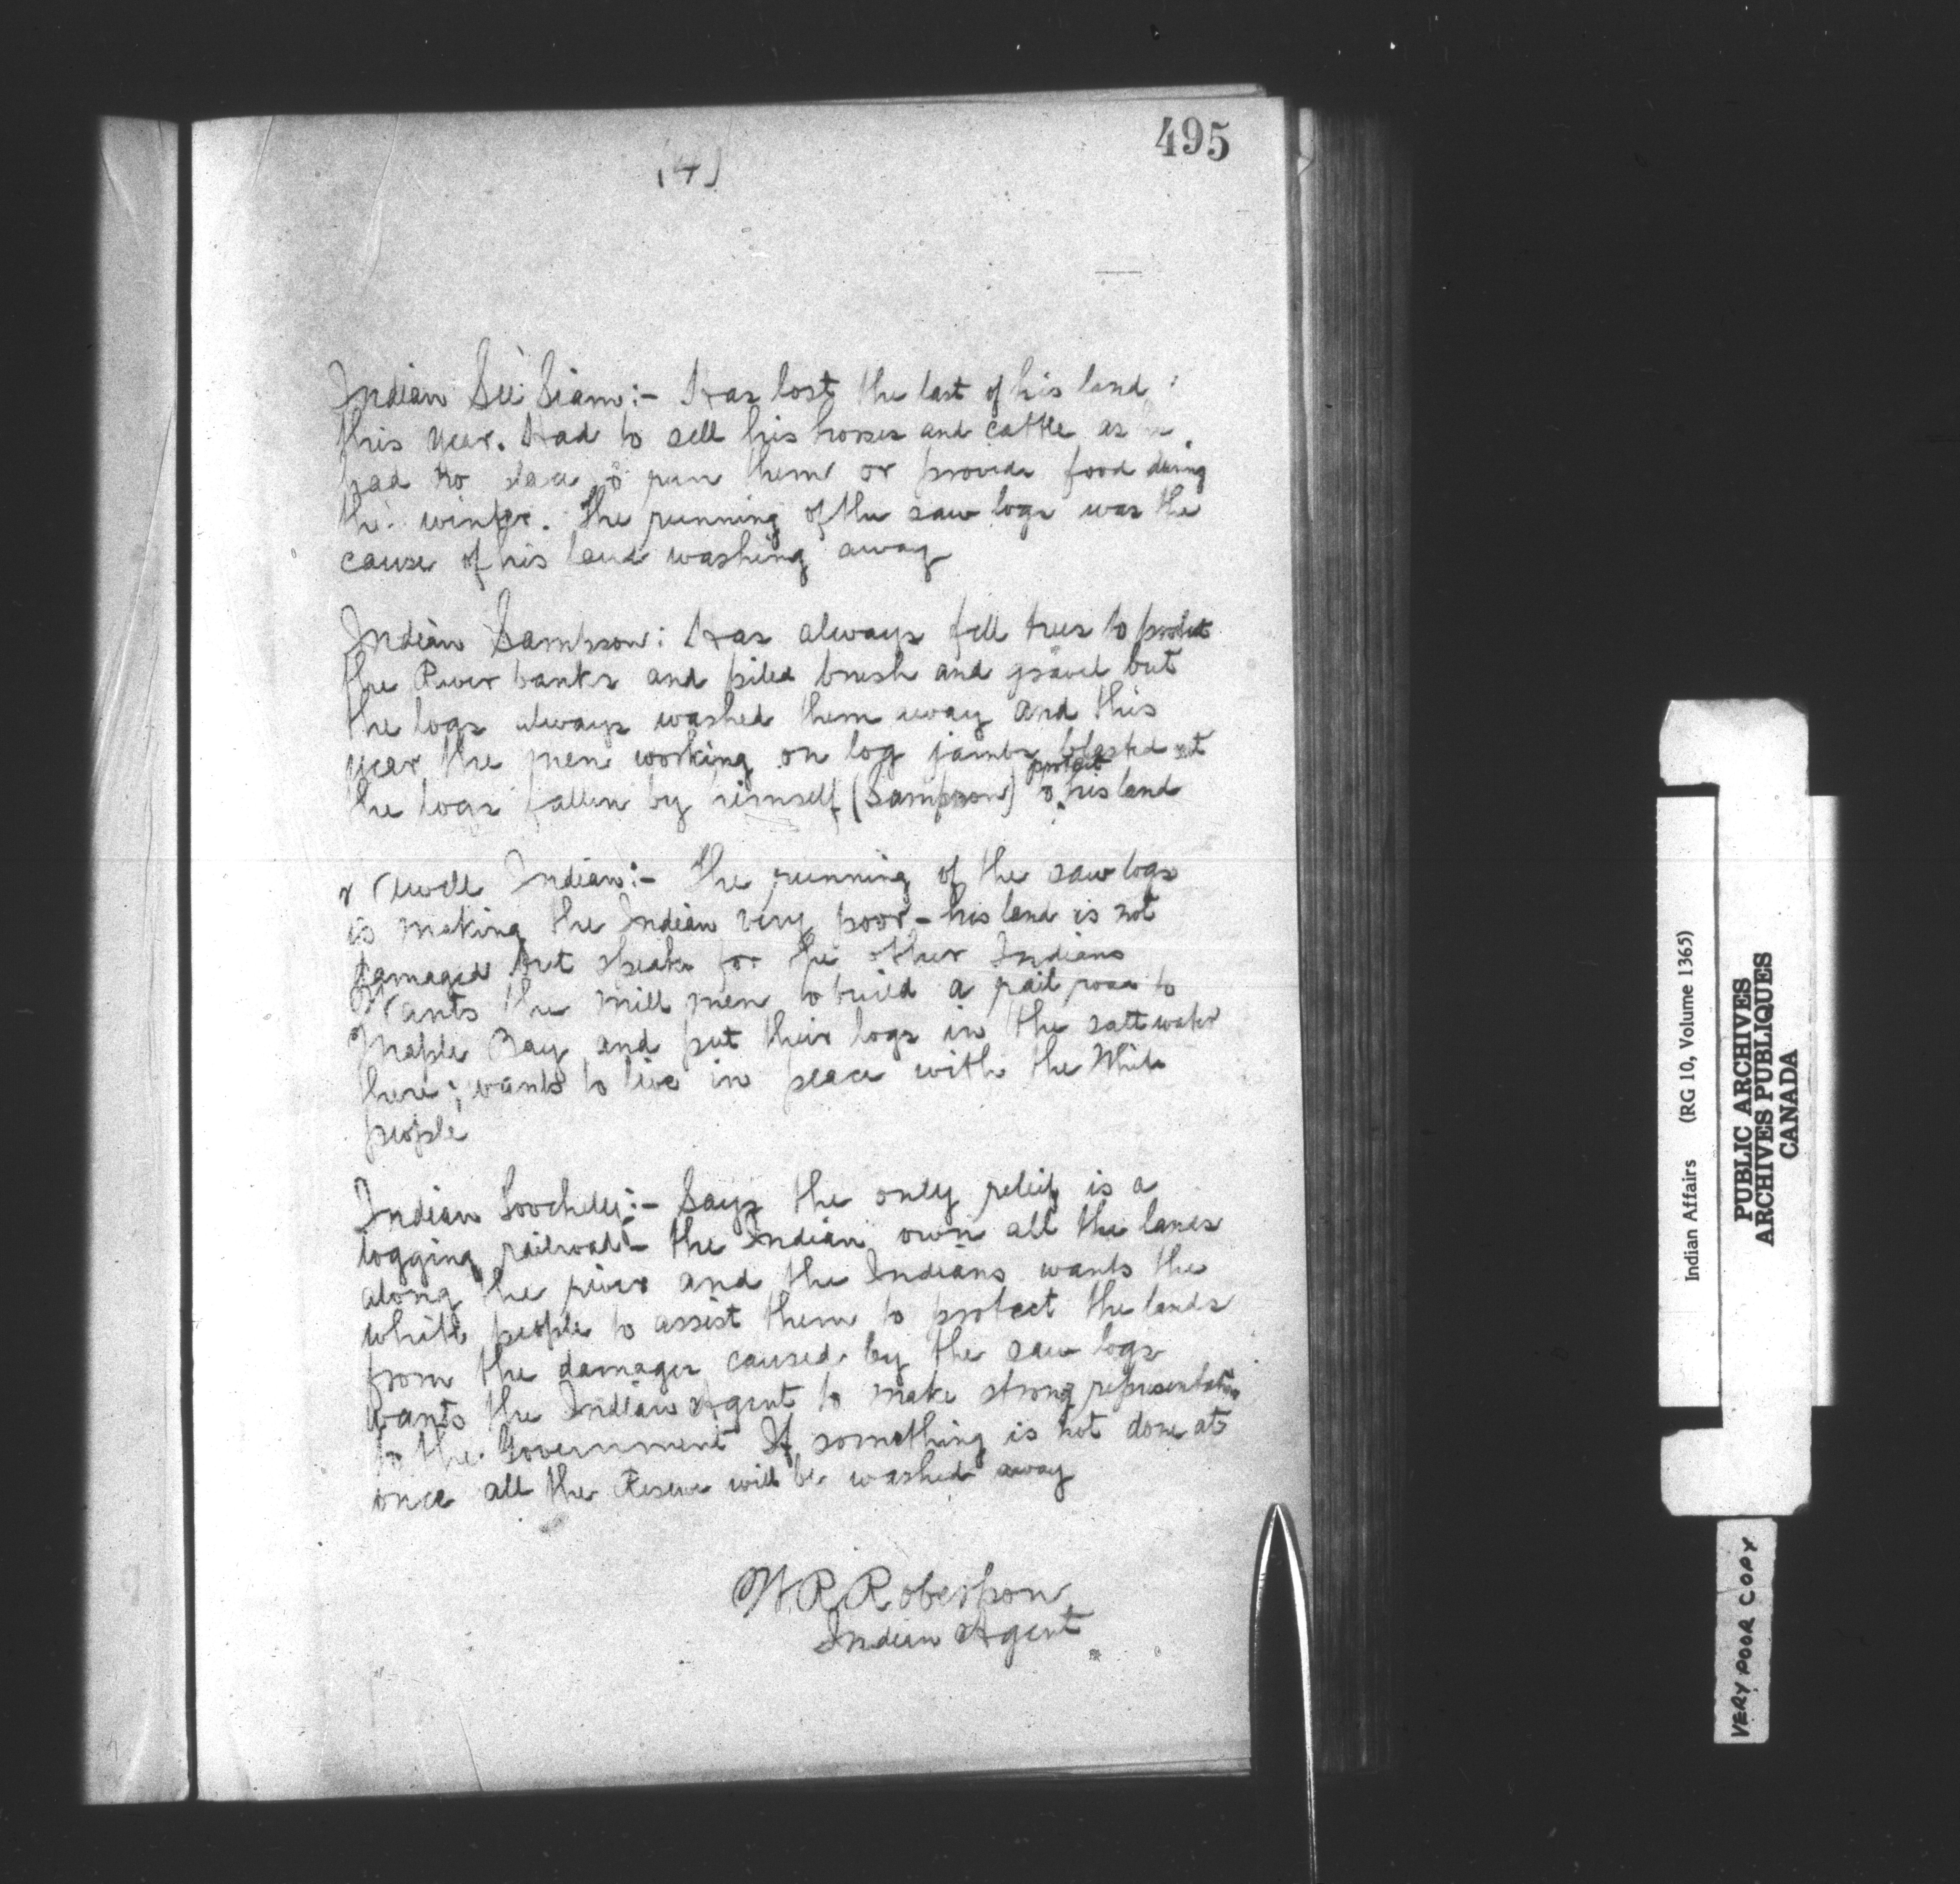 495
(4)
Indian See Siam:- Has lost the last of his land
this year. Had to sell his horses and cattle as he
had no place to run them or provide food during
the winter. The running of the saw logs was the
cause of his land washing away
Indian Sampson: Has always fell trees to protect
the River banks and piled brush and gravel but
the logs always washed them away and this
year the men working on log jambs blasted out
the logs fallen by himself (Sampson) to protect his land
Indian:- The running of the saw logs
is making the Indian very poor - his land is not
damaged but speaks for the other Indians
Wants the mill men to build a rail road to
Maple Bay and put their logs in the salt water
here; wants to live in peace with the White
people
Indian :- Says the only relief is a
logging railroad - the Indian own all the lands
along the river and the Indians wants the
white people to assist them to protect the lands
from the damages caused by the saw logs
wants the Indian Agent to make strong representation
to the Government If something is not done at
once all the Reserve will be washed away
W.R. Robertson
Indian Agent
Indian Affairs (RG 10, Volume 1365)
PUBLIC ARCHIVES
ARCHIVES PUBLIQUES
CANADA
VERY POOR COPY